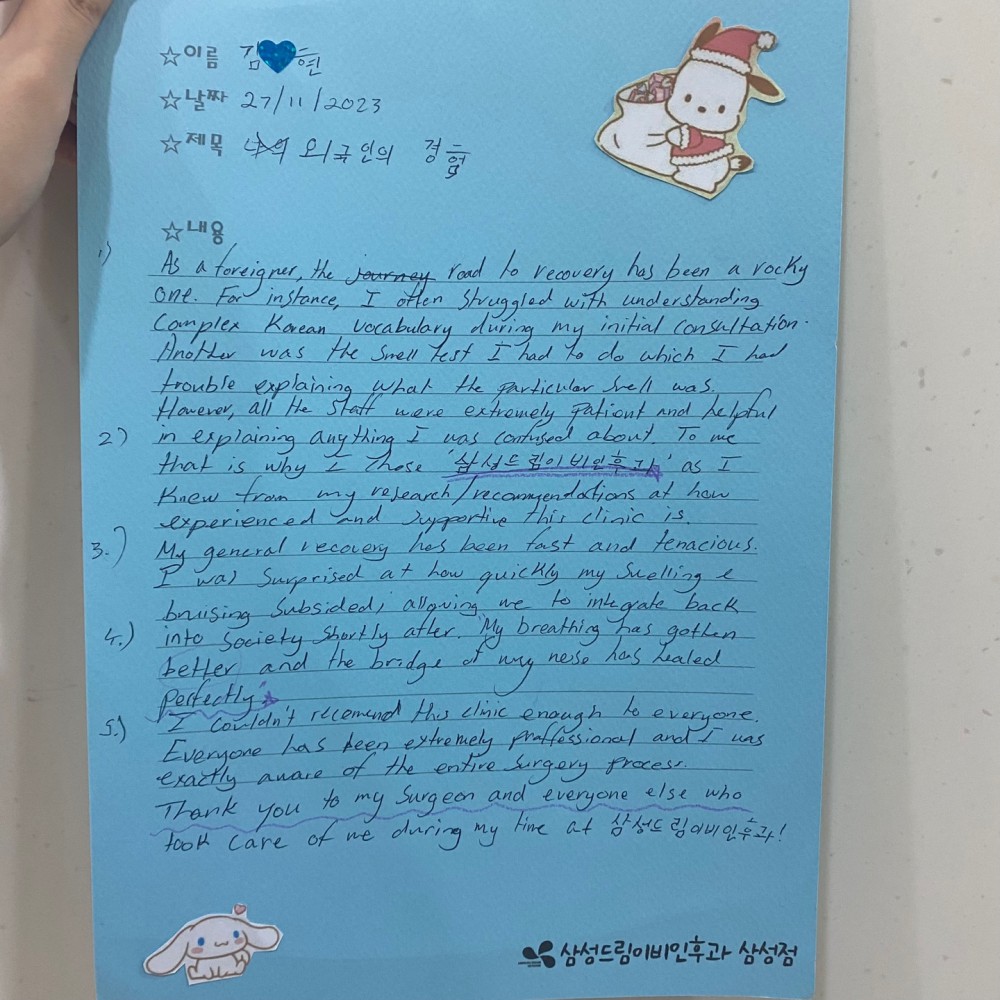 ☆이름 김💙현
☆날짜 27/11/2023
☆제목 나의 외국인의 경험
☆내용
1) As a foreigner, the journey road to recovery has been a rocky
one. For instance, I often struggled with understanding
Complex Korean vocabulary during my initial consultation.
Another was the smell test I had to do which I had
trouble explaining what the particular smell was.
However, all the staff were extremely patient and helpful
2) in explaining anything I was confused about. To me
that is why I chose '삼성드림이비인후과' as I
Knew from my research/recommendations at how
experienced and supportive this clinic is.
3.) My general recovery has been fast and tenacious.
I was surprised at how quickly my swelling &
bruising subsided, allowing me to integrate back
4.) into society shortly after. My breathing has gotten
better and the bridge of my nose has healed
perfectly.
5.) I couldn't recomend this clinic enough to everyone.
Everyone has been extremely proffessional and I was
exactly aware of the entire surgery process.
Thank you to my Surgeon and everyone else who
took care of me during my time at 삼성드림이비인후과!
삼성드림이비인후과 삼성점